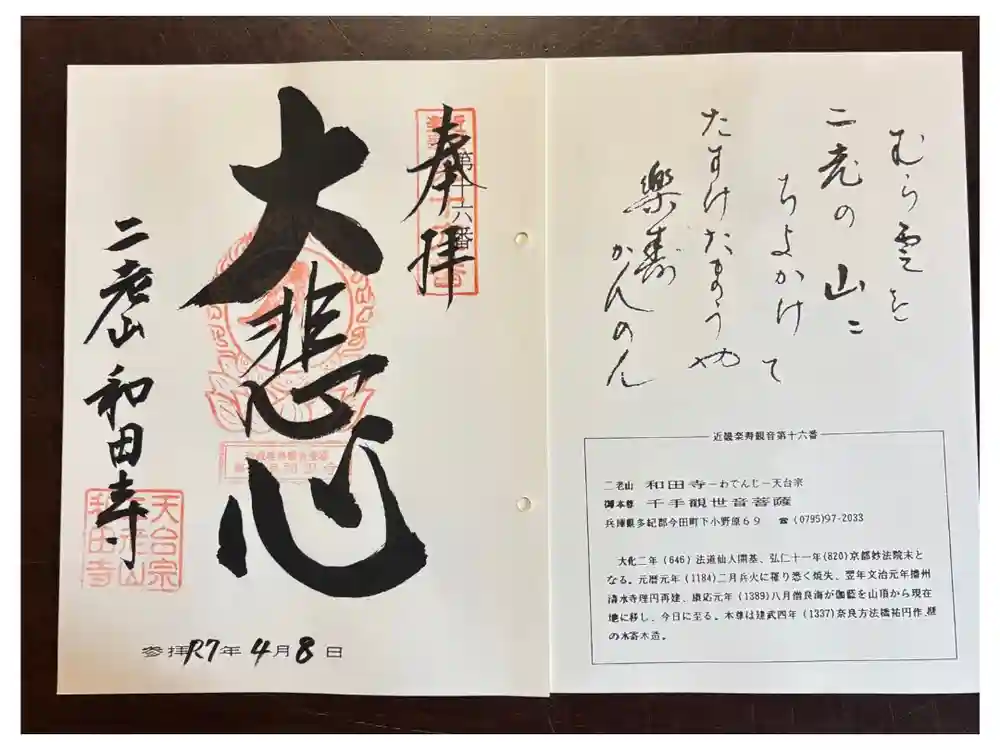 むら雲を
二老の山に
ちよかけて
たすけたまうや
楽寿
かんのん
近畿楽寿観音第十六番
二老山 和田寺－わでんじ－天台宗
御本尊 千手観世音菩薩
兵庫県多紀郡今田町下小野原69 ☎(0795)97-2033
大化二年(646)法道仙人開基、弘仁十一年(820)京都妙法院末と
なる。元暦元年(1184)二月兵火に罹り悉く焼失、翌年文治元年播州
清水寺理円再建、康応元年(1389)八月僧良海が伽藍を山頂から現在
地に移し、今日に至る。本尊は建武四年(1337)奈良方法橋祐円作、檀
の木寄木造。
奉拝
第十六番
大悲心
二老山 和田寺
天台宗
二老山
和田寺
参拝R7年4月8日